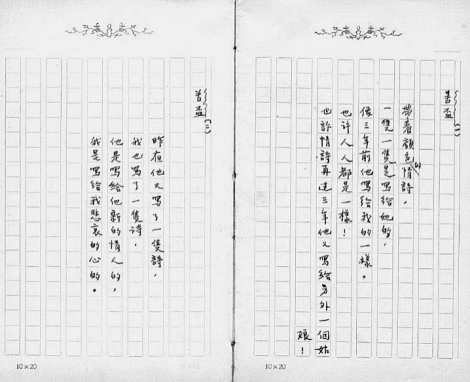 苦盃(一)
帶著顏色的情詩,
一隻一隻是寫給她的,
像三年前他寫給我的一樣。
也許人人都是一樣!
也許情詩再過三年他又寫給另外一個姑
娘!
10×20
苦盃(二)
昨夜他又寫了一隻詩,
我也寫了一隻詩,
他是寫給他新的情人的,
我是寫給我悲哀的心的。
10×20